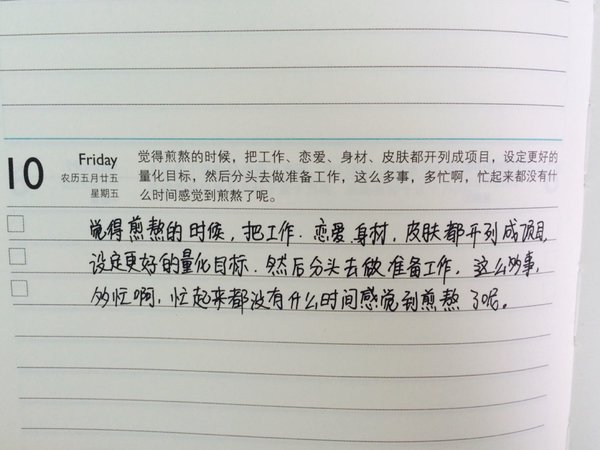 10
Friday
农历五月廿五
星期五
觉得煎熬的时候，把工作、恋爱、身材、皮肤都开列成项目，设定更好的
量化目标，然后分头去做准备工作，这么多事，多忙啊，忙起来都没有什
么时间感觉到煎熬了呢。
觉得煎熬的时候，把工作、恋爱、身材，皮肤都开列成项目，
设定更好的量化目标．然后分头去做准备工作，这么多事，
多忙啊，忙起来都没有什么时间感觉到煎熬了呢。